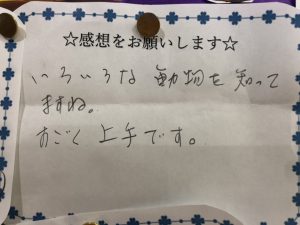 ☆感想をお願いします☆
いろいろな動物を知って
ますね。
すごく上手です。